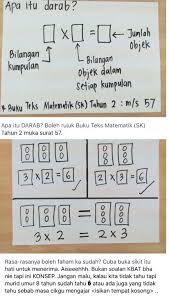 Apa itu darab?
□ x □ = □ ← Jumlah Objek
Bilangan kumpulan
Bilangan Objek dalam Setiap kumpulan
* Buku Teks Matematik (SK) Tahun 2 : m/s 57
Apa itu DARAB? Boleh rujuk Buku Teks Matematik (SK)
Tahun 2 muka surat 57.
3 x 2 = 6
2 x 3 = 6
3 x 2 = 2 x 3
Rasa-rasanya boleh faham ka sudah? Cuba buka sikit itu
hati untuk menerima. Aiseeehhh. Bukan soalan KBAT bha
nie tapi ini KONSEP. Jangan malu, kalau kita tidak tahu tapi
murid umur 8 tahun sudah tahu 6 atau ada juga yang tidak
tahu sebab masa cikgu mengajar <isikan tempat kosong> ..